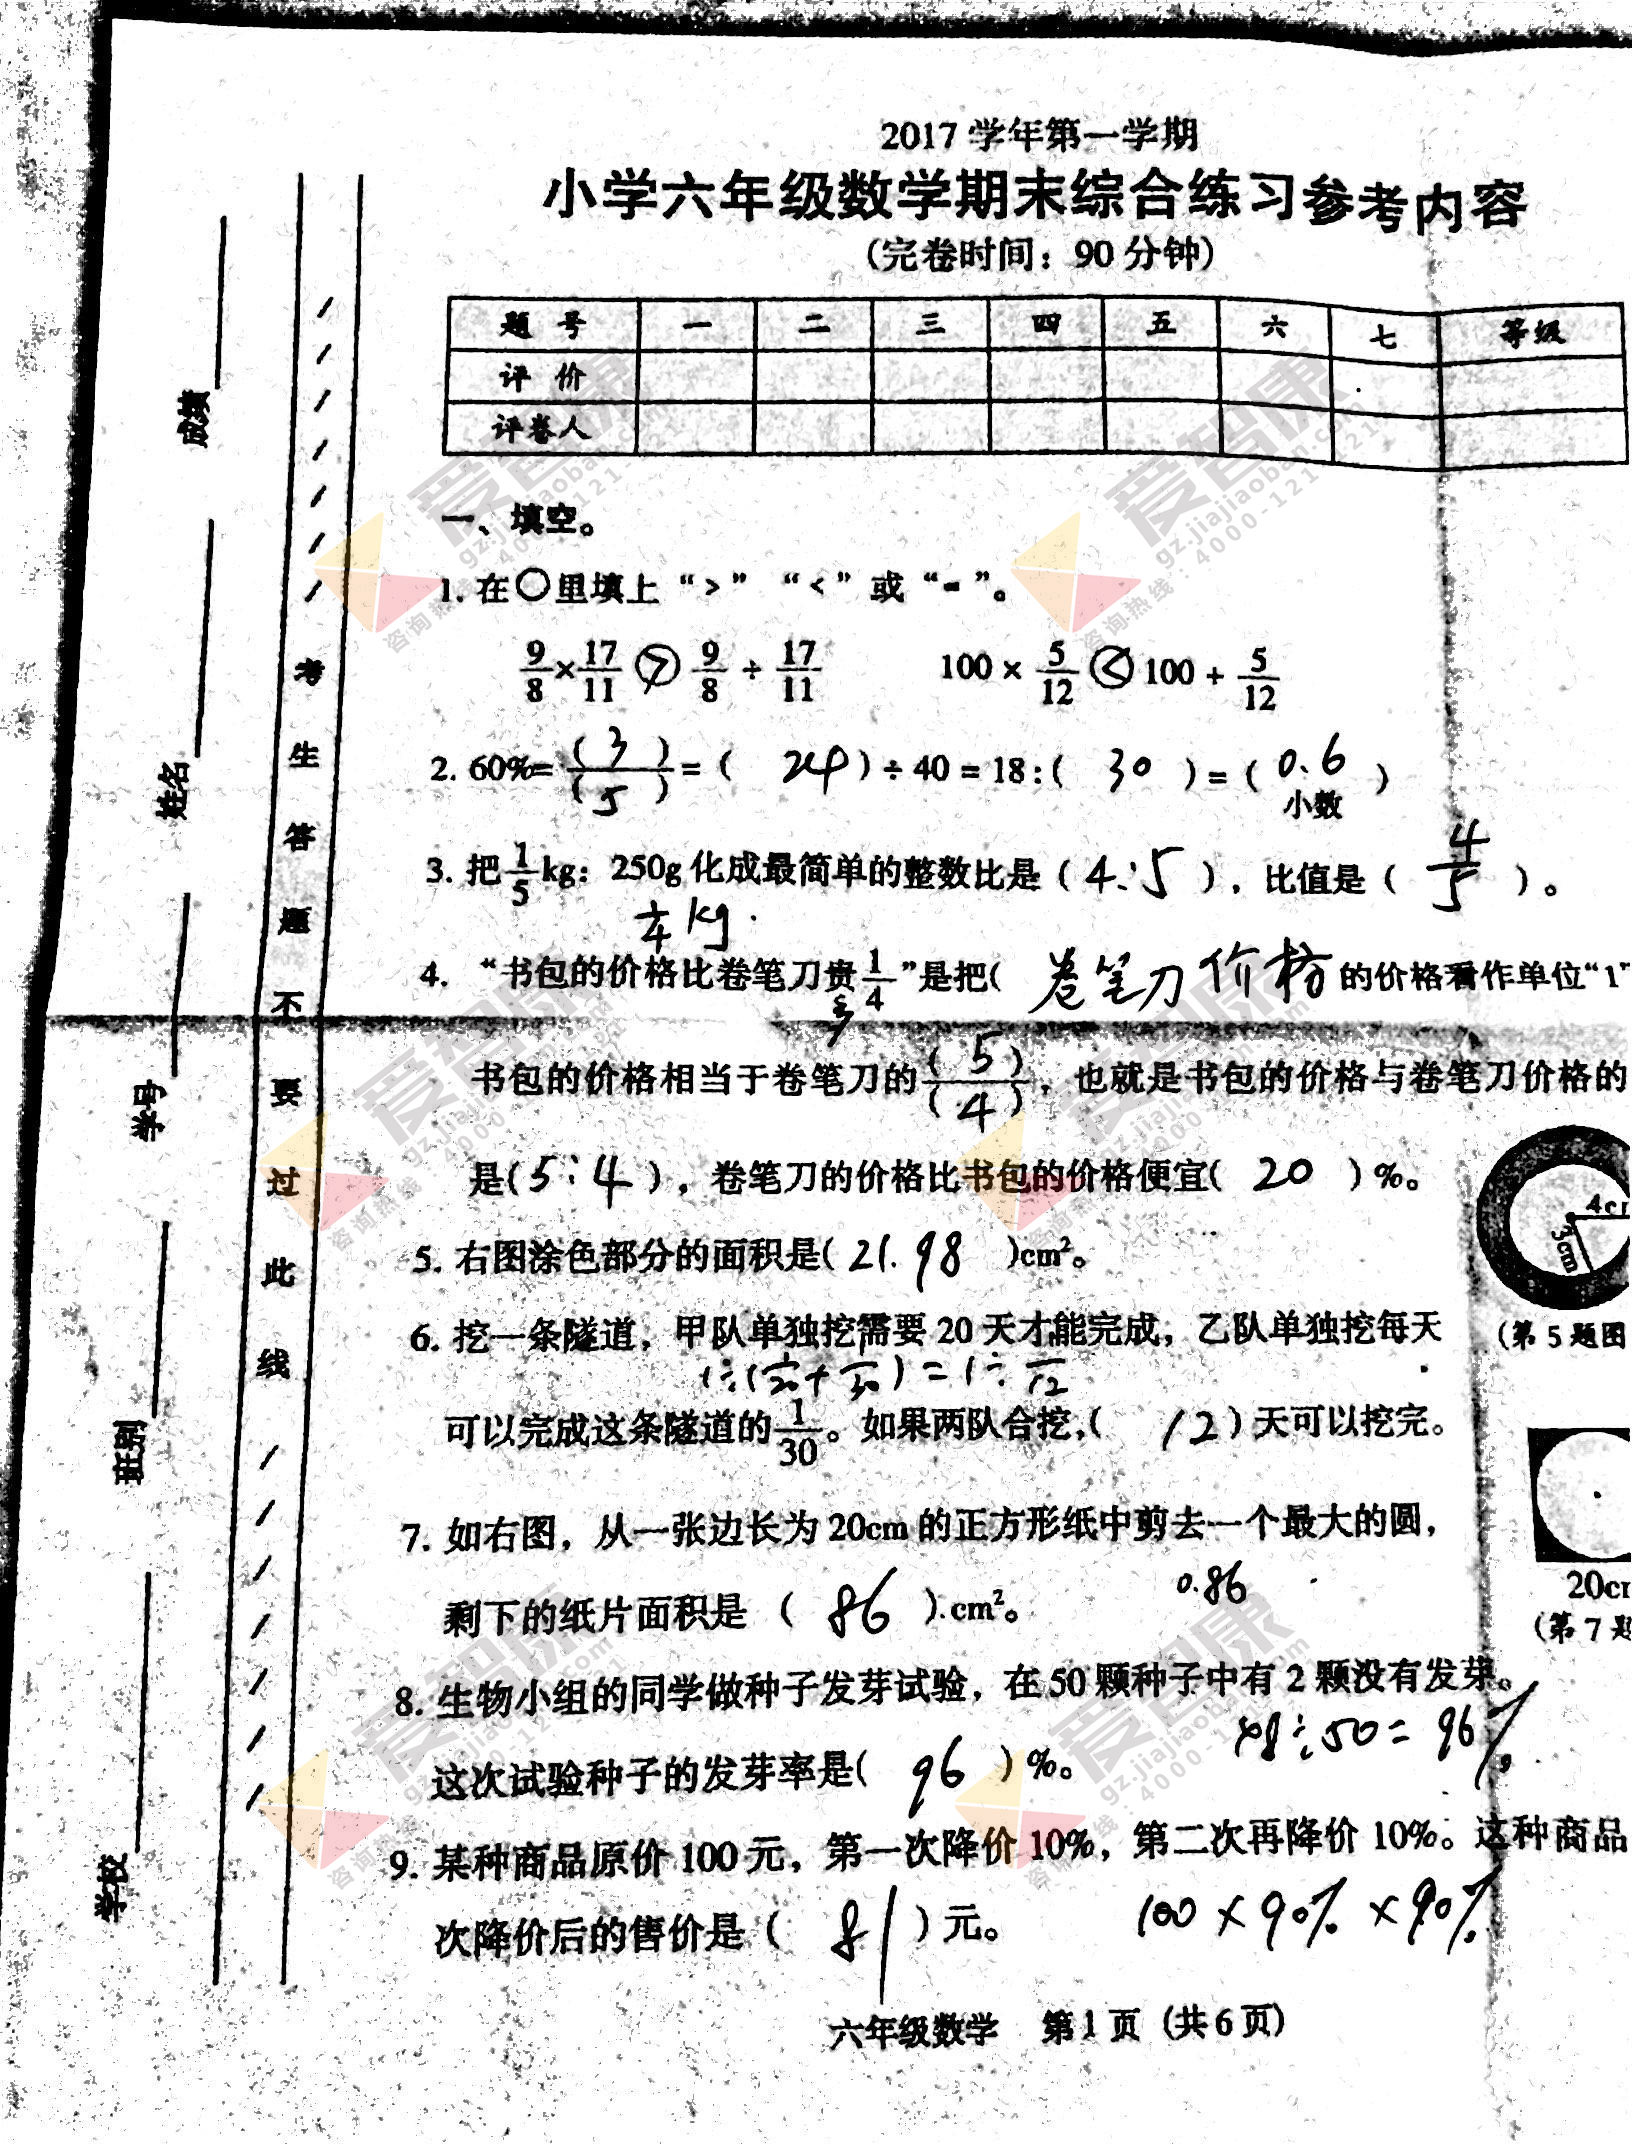 2017 学年第一学期
小学六年级数学期末综合练习参考内容
(完卷时间：90 分钟)
题 号 一 二 三 四 五 六 七 等级
评 价
评卷人
一、填空。
1. 在○里填上 “>” “<” 或 “=”。
9/8×17/11 > 9/8÷17/11 100×5/12 < 100÷5/12
2. 60%=(3)/(5)=( 24 )÷40=18:( 30 )=( 0.6 )
小数
3. 把1/5kg：250g 化成最简单的整数比是 ( 4:5 )，比值是 ( 4/5 )。
1/4 kg
4. “书包的价格比卷笔刀贵1/4”是把( 卷笔刀价格 的价格看作单位“1”
多
书包的价格相当于卷笔刀的(5)/(4)，也就是书包的价格与卷笔刀价格的
是(5:4)，卷笔刀的价格比书包的价格便宜( 20 )%。
4cm
3cm
5. 右图涂色部分的面积是( 21.98 )cm²。
(第 5 题图
6. 挖一条隧道，甲队单独挖需要 20 天才能完成，乙队单独挖每天
1÷(1/20+1/30)=1÷1/12
可以完成这条隧道的1/30。如果两队合挖，( 12 )天可以挖完。
7. 如右图，从一张边长为 20cm 的正方形纸中剪去一个最大的圆，
0.86
剩下的纸片面积是 ( 86 ) cm²。
20cm
(第 7 题
8. 生物小组的同学做种子发芽试验，在 50 颗种子中有 2 颗没有发芽。
48÷50=96%
这次试验种子的发芽率是( 96 )%。
9. 某种商品原价 100 元，第一次降价 10%，第二次再降价 10%。这种商品
次降价后的售价是 ( 81 ) 元。
100×90%×90%
六年级数学 第 1 页 (共 6 页)
成绩
姓名
学号
班别
学校
考生答题不要过此线
爱智康
gz.jiajiaoban.com
咨询热线：4000-121-121